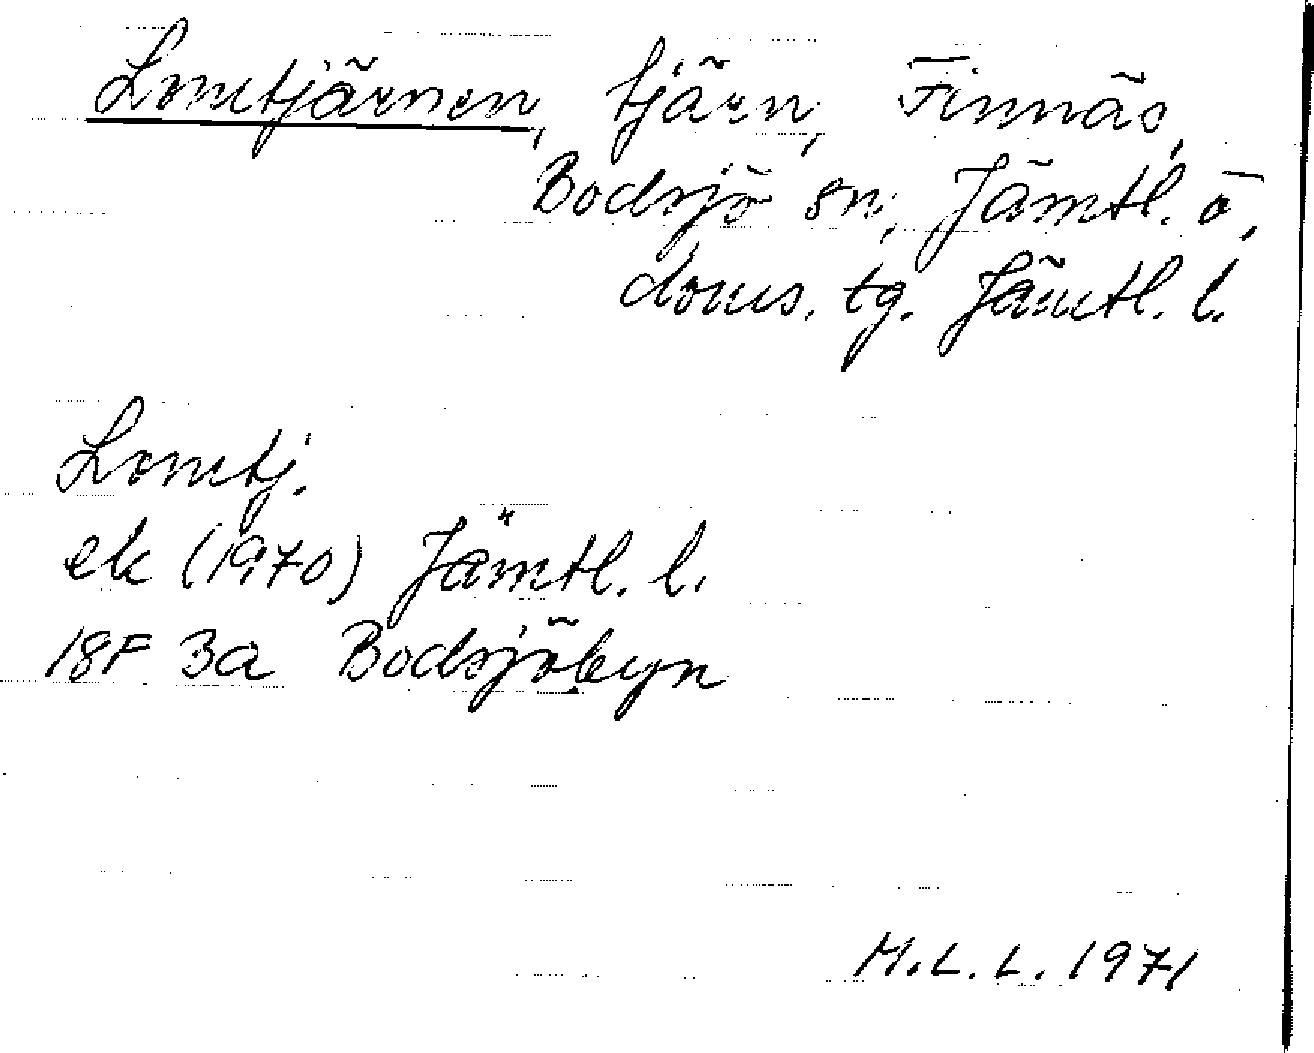 Lomtjärnen, tjärn, Finnäs,
Bodsjö sn, Jämtl. ö,
doms. tg. Jämtl. l.
Lomtj.
ek (1970) Jämtl. l.
18F 3a Bodsjöbyn
M.L.L. 1971